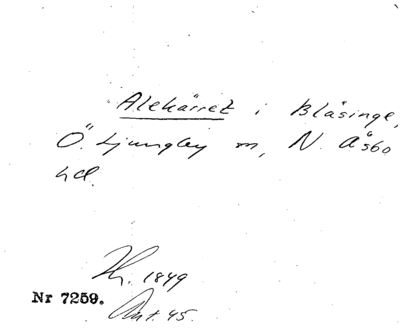 Alekärret i Blåsinge,
Ö. Ljungby sn, N. Åsbo
hd.
Kr. 1849
Nr 7259.
Ant. 45.